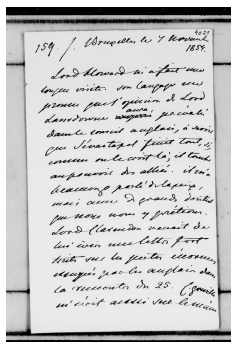 159. J. Bruxelles le 7 Novembre
1854.
Lord Howard m'a fait une
longue visite. son langage me
prouve que l'opinion de Lord
Lansdowne aura prévalu
dans le conseil anglais, à savoir
que Sévastopol finit tout, si
comme on le croit là, il tombe
au pouvoir des alliés. il m'a
beaucoup parlé de la paix,
mais avec de grands doutes
que nous nous y prêtions.
Lord Clarendon venait de
lui écrire une lettre fort
sur les pertes énormes
essuyées par les anglais dans
la rencontre du 25.
m'écrit aussi sur le même